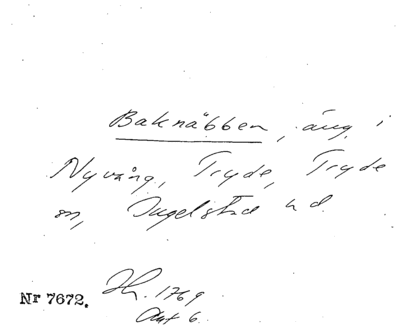 Baknäbben, äng i
Nyvång, Tryde, Tryde
sn, Ingelstad hd.
Nr 7672.
H. 1769
Akt 6.